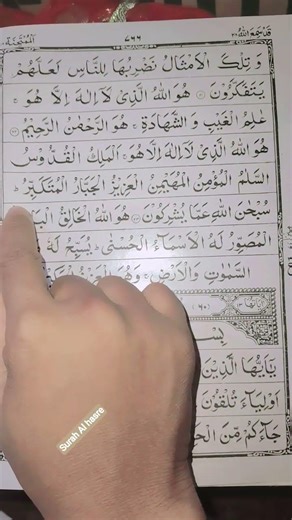 قَدْ سَمِعَ اللّٰهُ ٢٨
٧٦٦
وَ تِلْكَ الْاَمْثَالُ نَضْرِبُهَا لِلنَّاسِ لَعَلَّهُمْ
يَتَفَكَّرُوْنَ هُوَ اللّٰهُ الَّذِیْ لَاۤ اِلٰهَ اِلَّا هُوَ
عٰلِمُ الْغَیْبِ وَ الشَّهَادَةِ هُوَ الرَّحْمٰنُ الرَّحِیْمُ
هُوَ اللّٰهُ الَّذِیْ لَاۤ اِلٰهَ اِلَّا هُوَ اَلْمَلِكُ الْقُدُّوْسُ
السَّلٰمُ الْمُؤْمِنُ الْمُهَیْمِنُ الْعَزِیْزُ الْجَبَّارُ الْمُتَكَبِّرُ
سُبْحٰنَ اللّٰهِ عَمَّا یُشْرِكُوْنَ هُوَ اللّٰهُ الْخَالِقُ
الْمُصَوِّرُ لَهُ الْاَسْمَآءُ الْحُسْنٰی یُسَبِّحُ لَهٗ
السَّمٰوٰتِ وَ الْاَرْضِ وَ هُوَ
(٦٠)
یٰۤاَیُّهَا الَّذِیْنَ
اَوْلِیَآءَ تُلْقُوْنَ
جَآءَكُمْ مِّنَ
Surah Al hasre